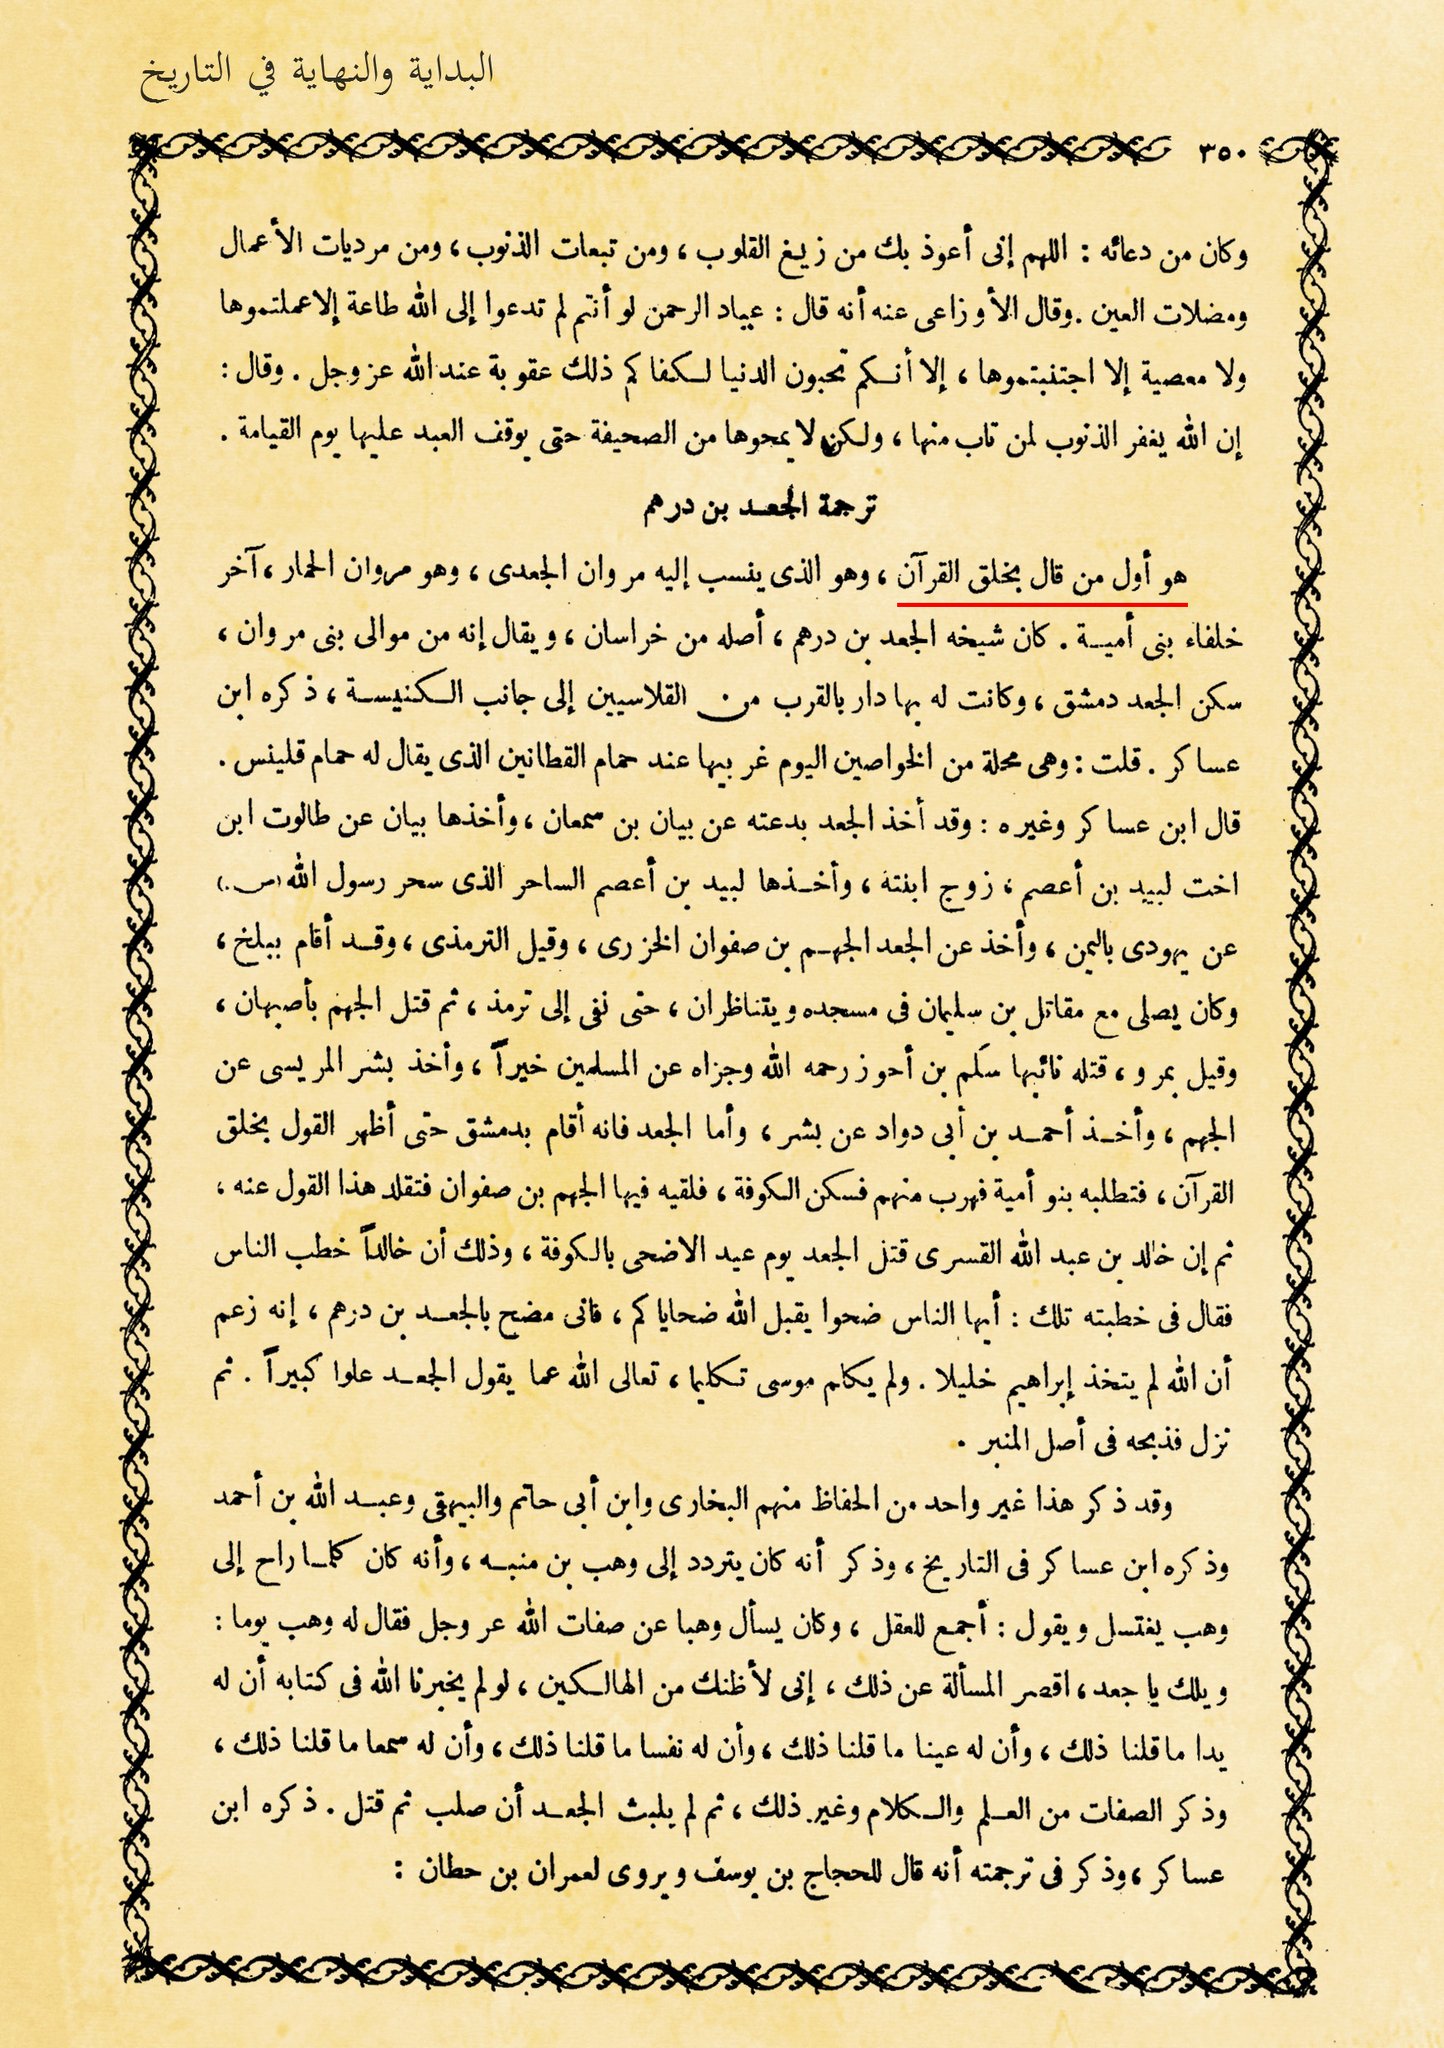 البداية والنهاية في التاريخ
٣٥٠
وكان من دعائه : اللهم إنى أعوذ بك من زيغ القلوب ، ومن تبعات الذنوب ، ومن مرديات الأعمال
ومضلات العين . وقال الأوزاعى عنه أنه قال : عباد الرحمن لو أنتم لم تدعوا إلى الله طاعة إلا عملتموها
ولا معصية إلا اجتنبتموها ، إلا أنكم تحبون الدنيا لكفاكم ذلك عقوبة عند الله عز وجل . وقال :
إن الله يغفر الذنوب لمن تاب منها ، ولكن لا يمحوها من الصحيفة حتى يوقف العبد عليها يوم القيامة .
ترجمة الجعد بن درهم
هو أول من قال بخلق القرآن ، وهو الذى ينسب إليه مروان الجعدى ، وهو مروان الحمار ، آخر
خلفاء بنى أمية . كان شيخه الجعد بن درهم ، أصله من خراسان ، ويقال إنه من موالى بنى مروان ،
سكن الجعد دمشق ، وكانت له بها دار بالقرب من القلاسيين إلى جانب الكنيسة ، ذكره ابن
عساكر . قلت : وهى محلة من الخواصين اليوم غربيها عند حمام القطانين الذى يقال له حمام قلينس .
قال ابن عساكر وغيره : وقد أخذ الجعد بدعته عن بيان بن سمعان ، وأخذها بيان عن طالوت ابن
اخت لبيد بن أعصم ، زوج ابنته ، وأخذها لبيد بن أعصم الساحر الذى سحر رسول الله (ص.)
عن يهودى باليمن ، وأخذ عن الجعد الجهم بن صفوان الخزرى ، وقيل الترمذى ، وقد أقام ببلخ ،
وكان يصلى مع مقاتل بن سليمان فى مسجده ويتناظران ، حتى نفى إلى ترمذ ، ثم قتل الجهم بأصبهان ،
وقيل بمرو ، قتله نائبها سلم بن أحوز رحمه الله وجزاه عن المسلمين خيراً ، وأخذ بشر المريسى عن
الجهم ، وأخذ أحمد بن أبى دواد عن بشر ، وأما الجعد فانه أقام بدمشق حتى أظهر القول بخلق
القرآن ، فتطلبه بنو أمية فهرب منهم فسكن الكوفة ، فلقيه فيها الجهم بن صفوان فتقلد هذا القول عنه ،
ثم إن خالد بن عبد الله القسرى قتل الجعد يوم عيد الاضحى بالكوفة ، وذلك أن خالداً خطب الناس
فقال فى خطبته تلك : أيها الناس ضحوا يقبل الله ضحاياكم ، فانى مضح بالجعد بن درهم ، إنه زعم
أن الله لم يتخذ إبراهيم خليلا . ولم يكلم موسى تكليما ، تعالى الله عما يقول الجعد علوا كبيراً . ثم
نزل فذبحه فى أصل المنبر .
وقد ذكر هذا غير واحد من الحفاظ منهم البخارى وابن أبى حاتم والبيهقى وعبد الله بن أحمد
وذكره ابن عساكر فى التاريخ ، وذكر أنه كان يتردد إلى وهب بن منبه ، وأنه كان كلما راح إلى
وهب يغتسل ويقول : أجمع للعقل ، وكان يسأل وهبا عن صفات الله عز وجل فقال له وهب يوما :
ويلك يا جعد ، اقصر المسألة عن ذلك ، إنى لأظنك من الهالكين ، لو لم يخبرنا الله فى كتابه أن له
يدا ما قلنا ذلك ، وأن له عينا ما قلنا ذلك ، وأن له نفسا ما قلنا ذلك ، وأن له سمعا ما قلنا ذلك ،
وذكر الصفات من العلم والكلام وغير ذلك ، ثم لم يلبث الجعد أن صلب ثم قتل . ذكره ابن
عساكر ، وذكر فى ترجمته أنه قال للحجاج بن يوسف ويروى لعمران بن حطان :